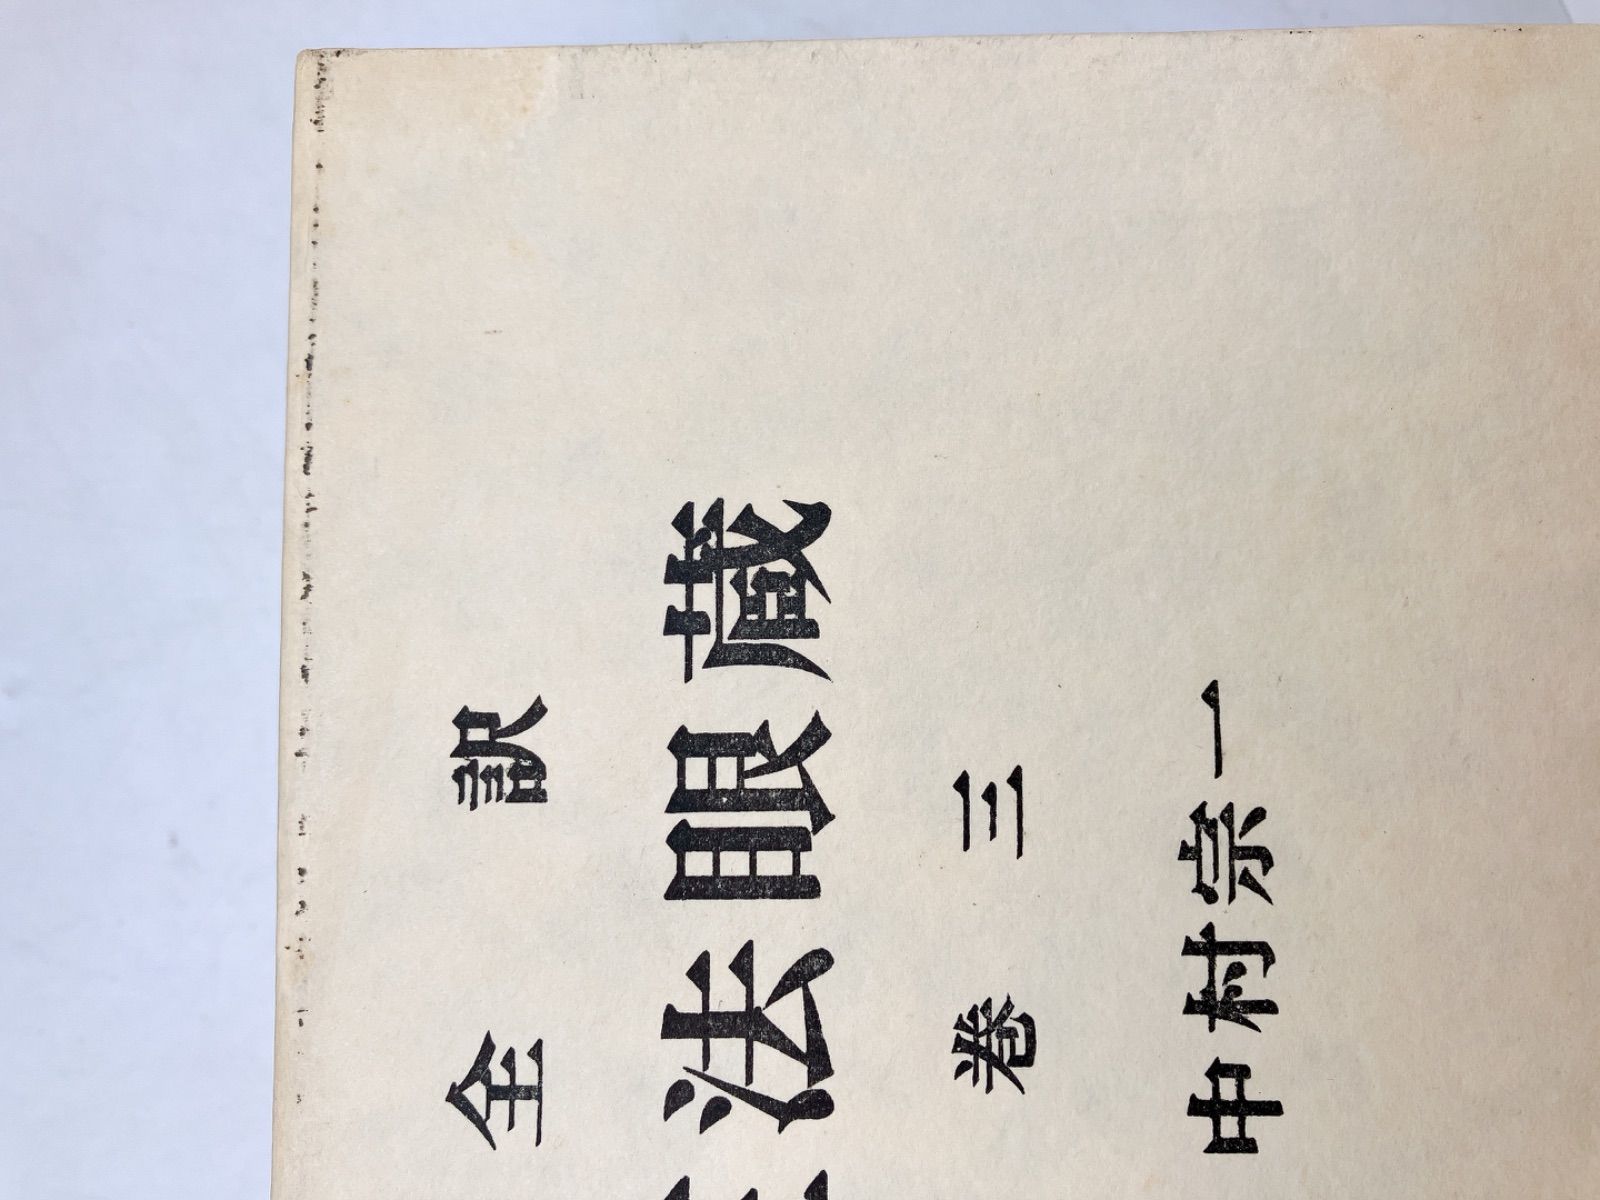 全訳
法眼蔵
巻三
中村宗一